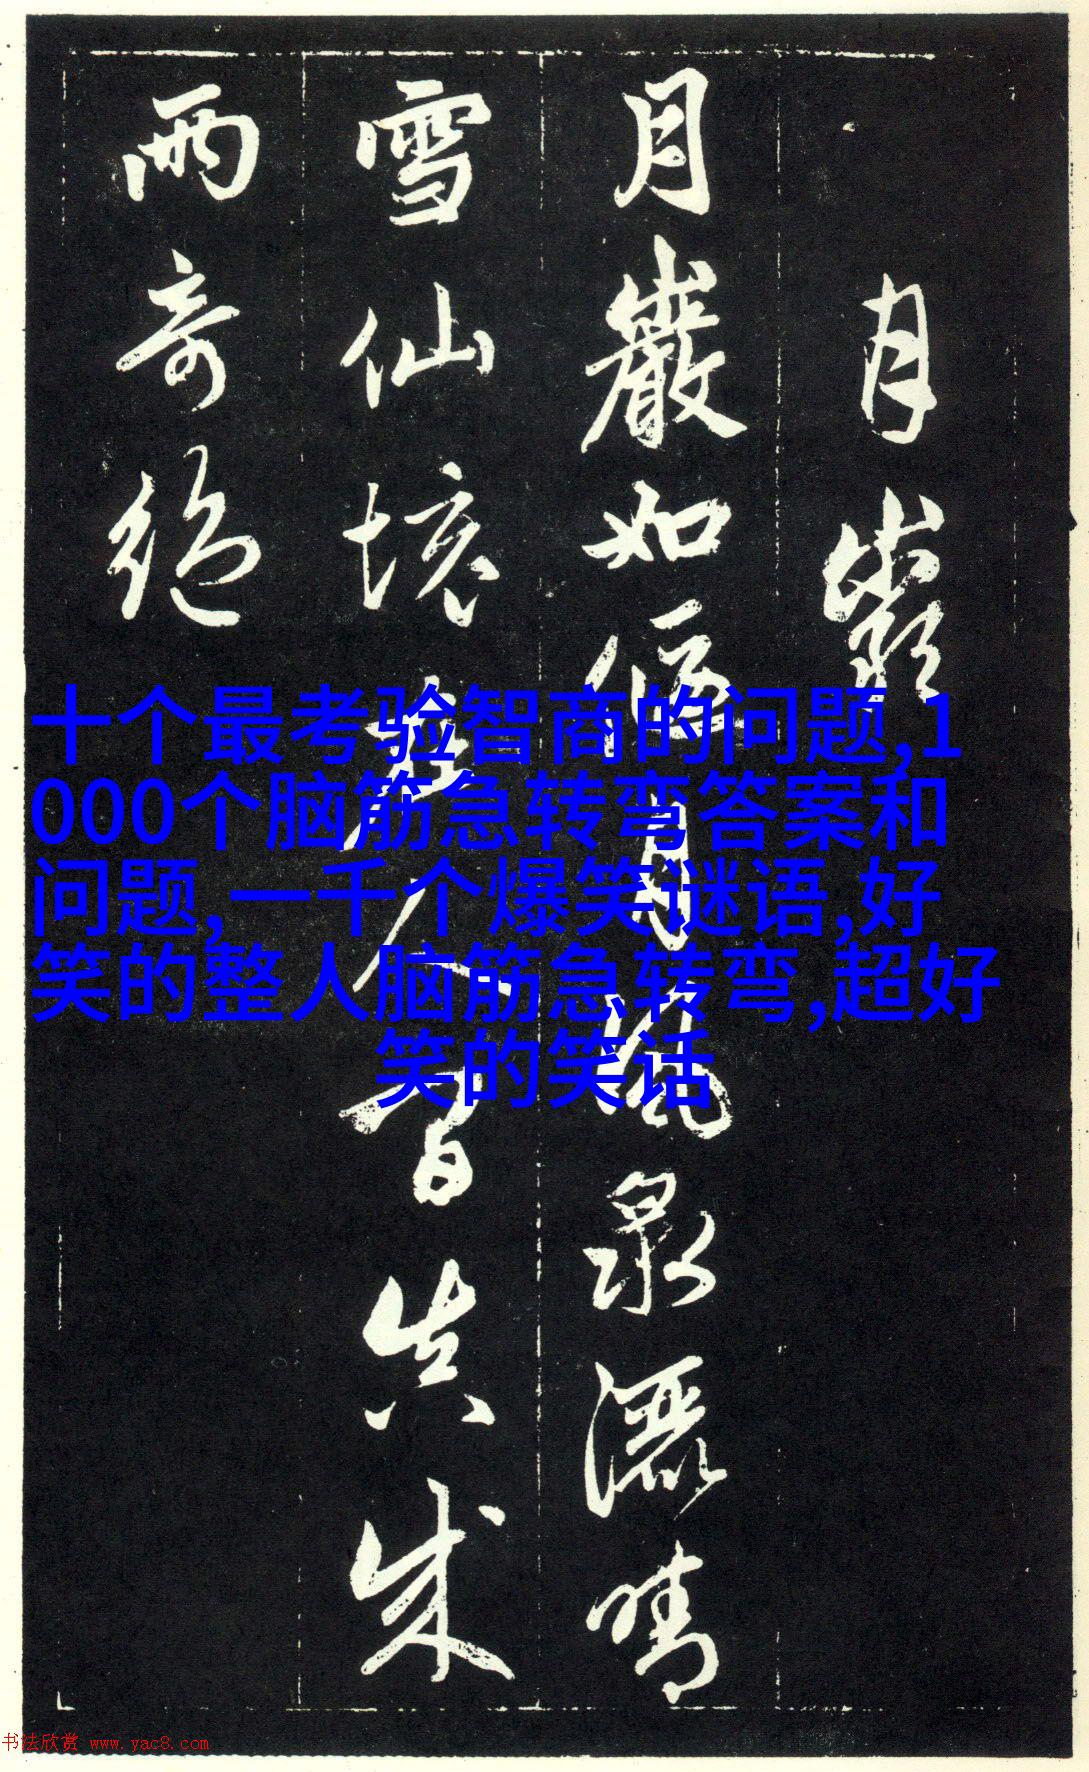 月巖
月巖如偃月風泉灑晴
雪仙境在人間真成
兩奇絕
十个最考验智商的问题,1
000个脑筋急转弯答案和
问题,一千个爆笑谜语,好
笑的整人脑筋急转弯,超好
笑的笑话
书法欣赏 www.yac8.com